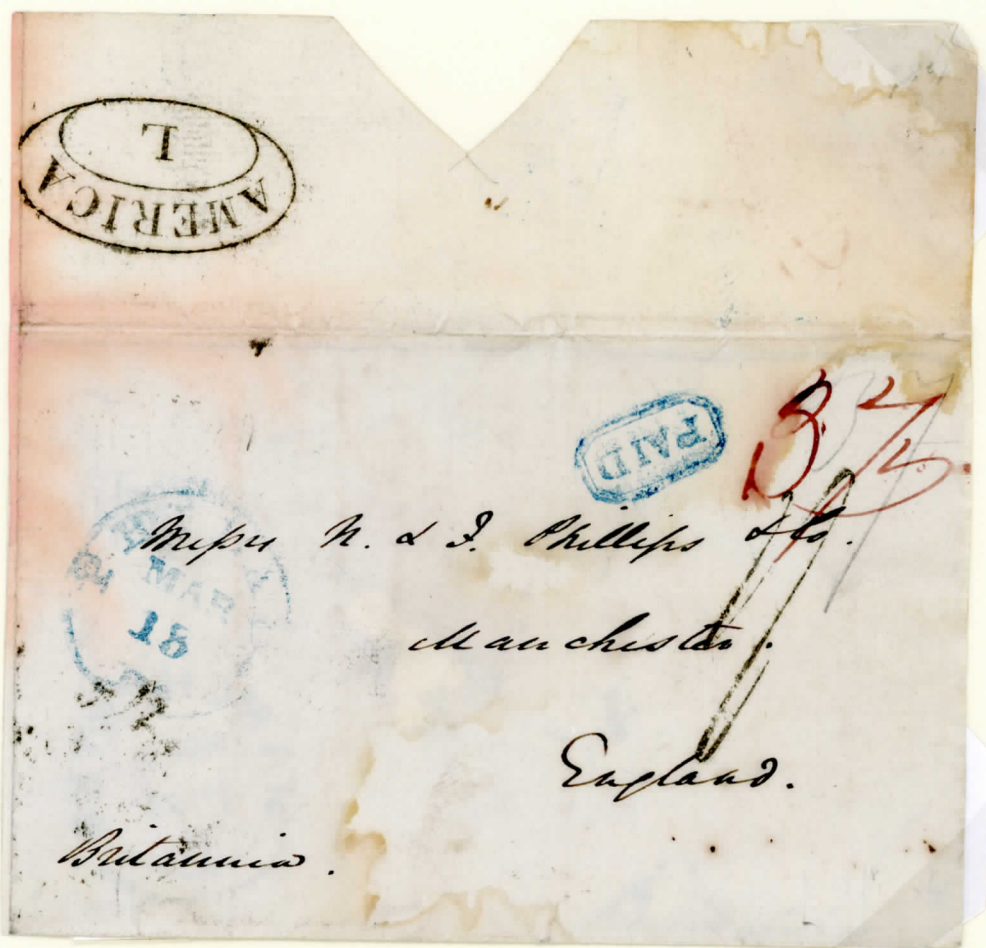 AMERICA
L
PAID
37½
Messrs N. & J. Phillips & Co.
MAR
18
Manchester.
England.
Britannia.